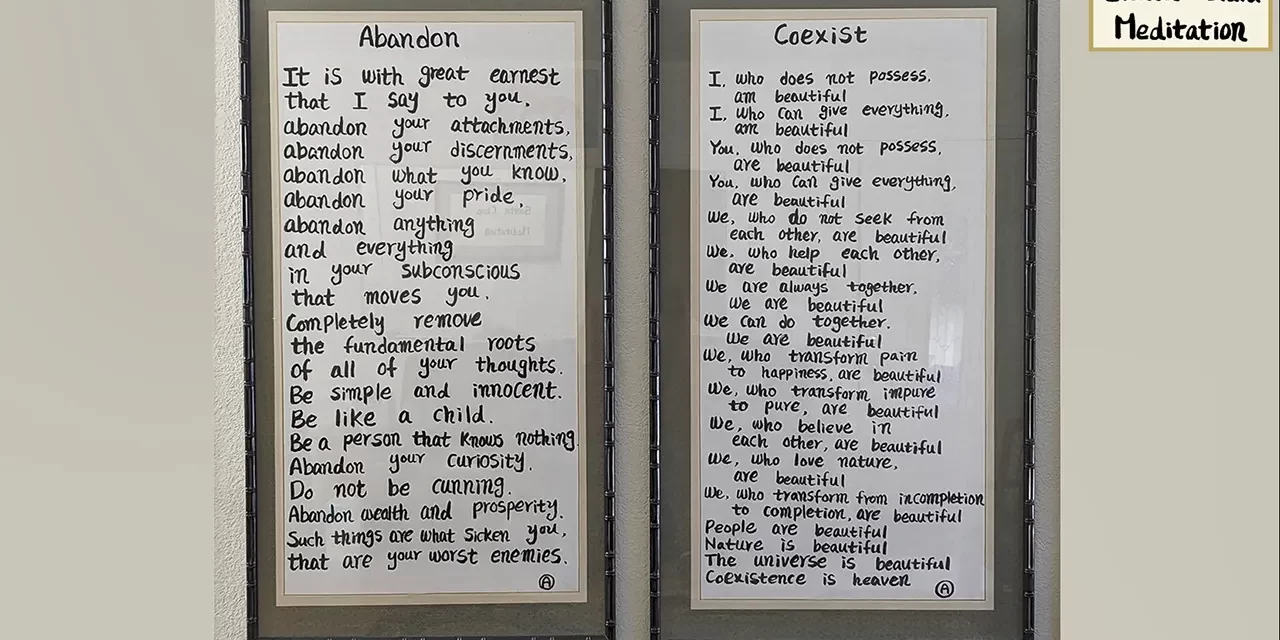 Abandon
It is with great earnest
that I say to you,
abandon your attachments,
abandon your discernments,
abandon what you know,
abandon your pride,
abandon anything
and everything
in your subconscious
that moves you.
Completely remove
the fundamental roots
of all of your thoughts.
Be simple and innocent.
Be like a child.
Be a person that knows nothing
Abandon your curiosity.
Do not be cunning.
Abandon wealth and prosperity.
Such things are what sicken you,
that are your worst enemies.
A
Coexist
I, who does not possess,
am beautiful
I, who can give everything,
am beautiful
You, who does not possess,
are beautiful
You, who can give everything,
are beautiful
We, who do not seek from
each other, are beautiful
We, who help each other,
are beautiful
We are always together,
we are beautiful
We can do together.
We are beautiful
We, who transform pain
to happiness, are beautiful
We, who transform impure
to pure, are beautiful
We, who believe in
each other, are beautiful
We, who love nature,
are beautiful
We, who transform from incompletion
to completion, are beautiful
People are beautiful
Nature is beautiful
The universe is beautiful
Coexistence is heaven
A
Meditation